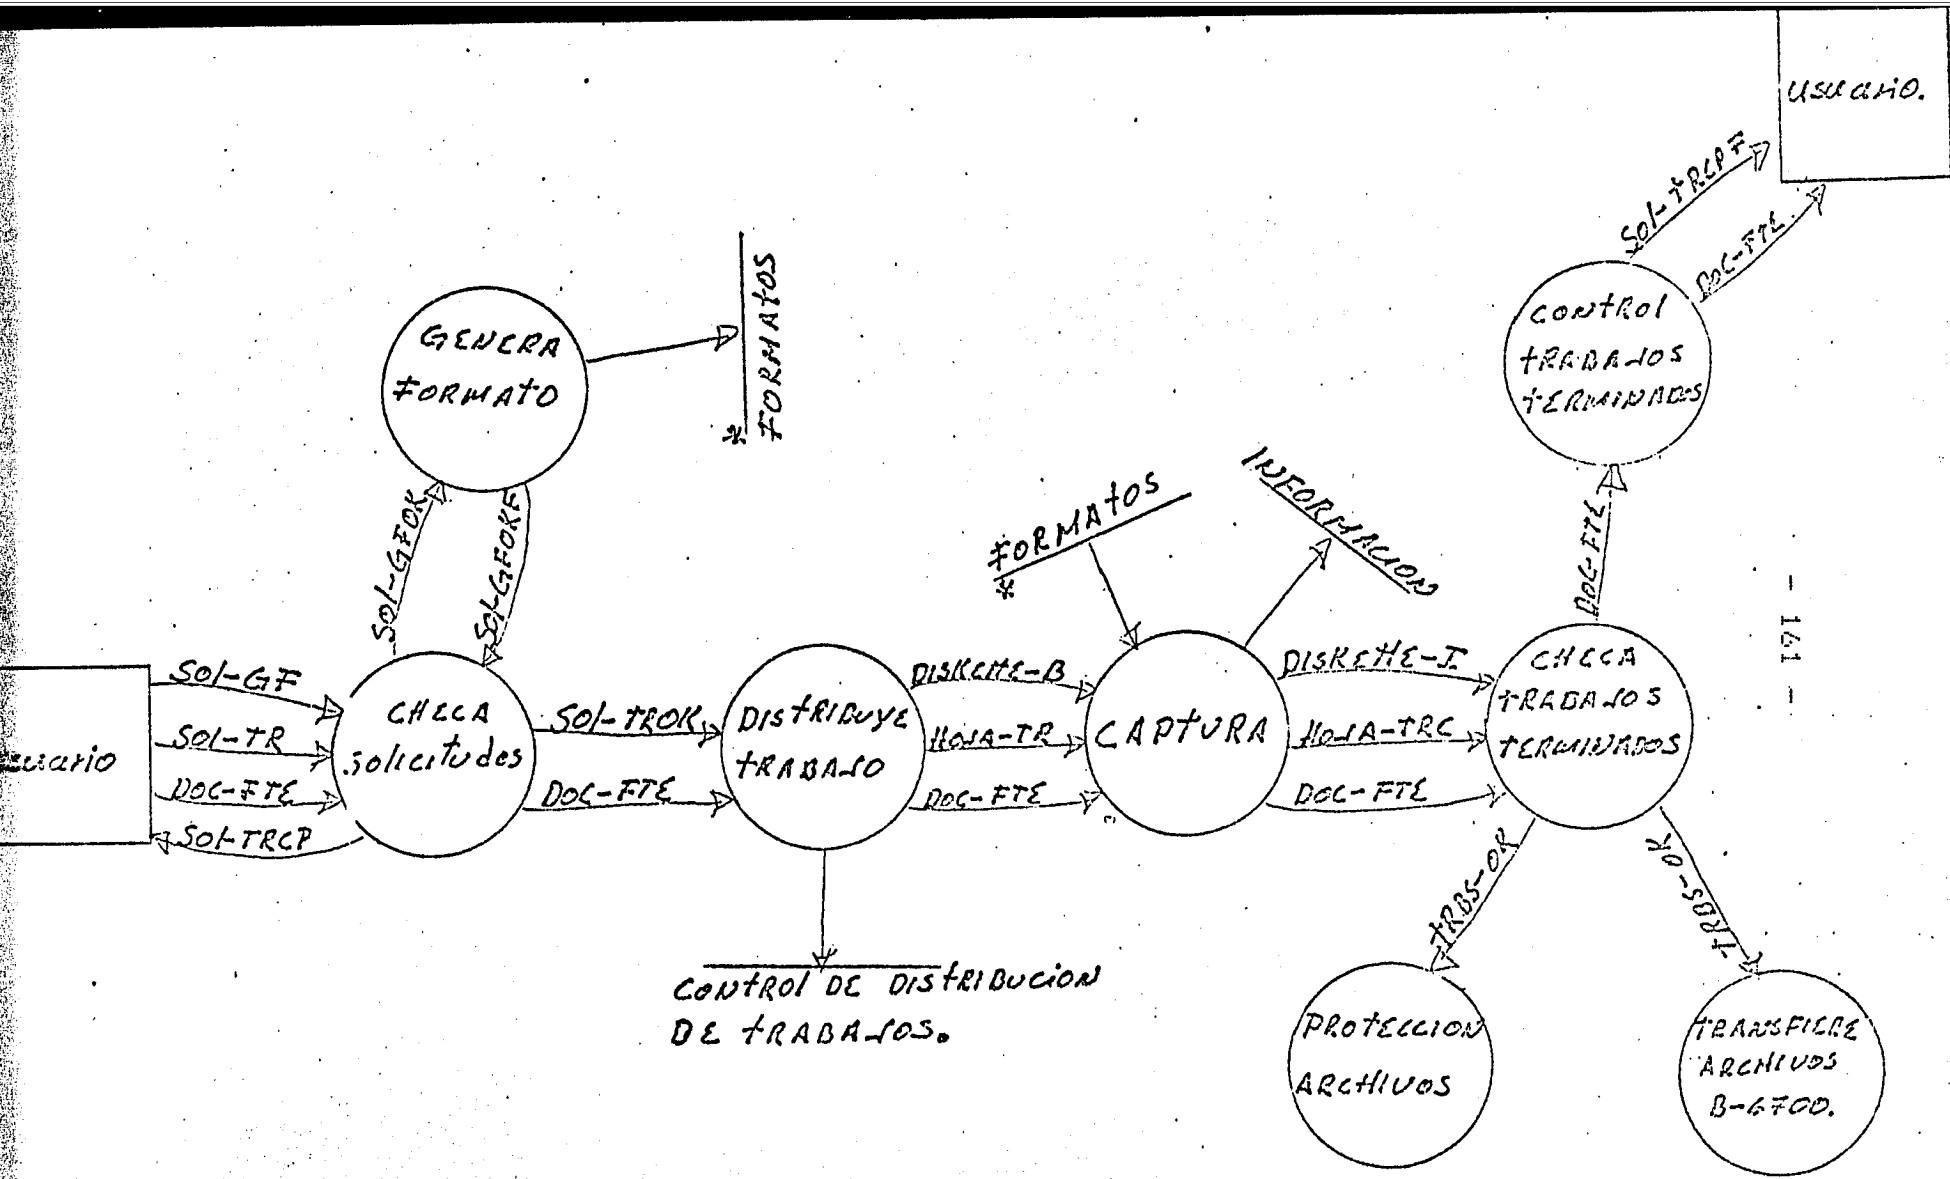 usuario.
Sol-TRCPF
DOC-FTE
CONTROL
TRABAJOS
TERMINADOS
GENERA
FORMATO
FORMATOS
*
SOL-GFOK
SOL-GFOKF
FORMATOS
*
INFORMACION
DOC-FTE
- 161 -
SOL-GF
SOL-TR
DOC-FTE
SOL-TRCP
suario
CHECA
solicitudes
SOL-TROK
DOC-FTE
DISTRIBUYE
TRABAJO
DISKETTE-B
HOJA-TR
DOC-FTE
CAPTURA
DISKETTE-I
HOJA-TRC
DOC-FTE
CHECA
TRABAJOS
TERMINADOS
TRBS-OK
TRBS-OK
CONTROL DE DISTRIBUCION
DE TRABAJOS.
PROTECCION
ARCHIVOS
TRANSFIERE
ARCHIVOS
B-6700.